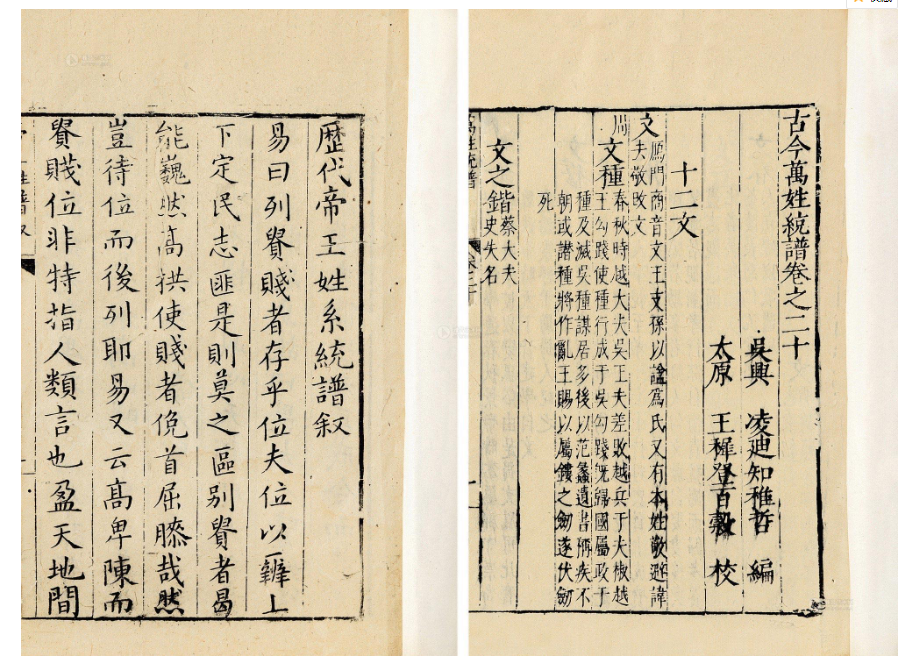 古今萬姓統譜卷之二十
吳興 凌迪知稚哲 編
太原 王穉登百穀 校
十二文
文 鴈門商音文王支孫以諡為氏又有本姓敬避諱
夫敬改文
周
文種 春秋時越大夫吳王夫差敗越兵于夫椒越
王勾踐使種行成于吳勾踐旣歸國屬政于
種及滅吳種謀居多後以范蠡遺書稱疾不
朝或譖種將作亂王賜以屬鏤之劒遂伏劒
死
文之鍇 蔡大夫
史失名
萬姓統譜
歷代帝王姓系統譜叙
易曰列貴賤者存乎位夫位以辯上
下定民志匪是則莫之區别貴者曷
能巍然高拱使賤者俛首屈膝哉然
豈待位而後列耶易又云高卑陳而
貴賤位非特指人類言也盈天地間